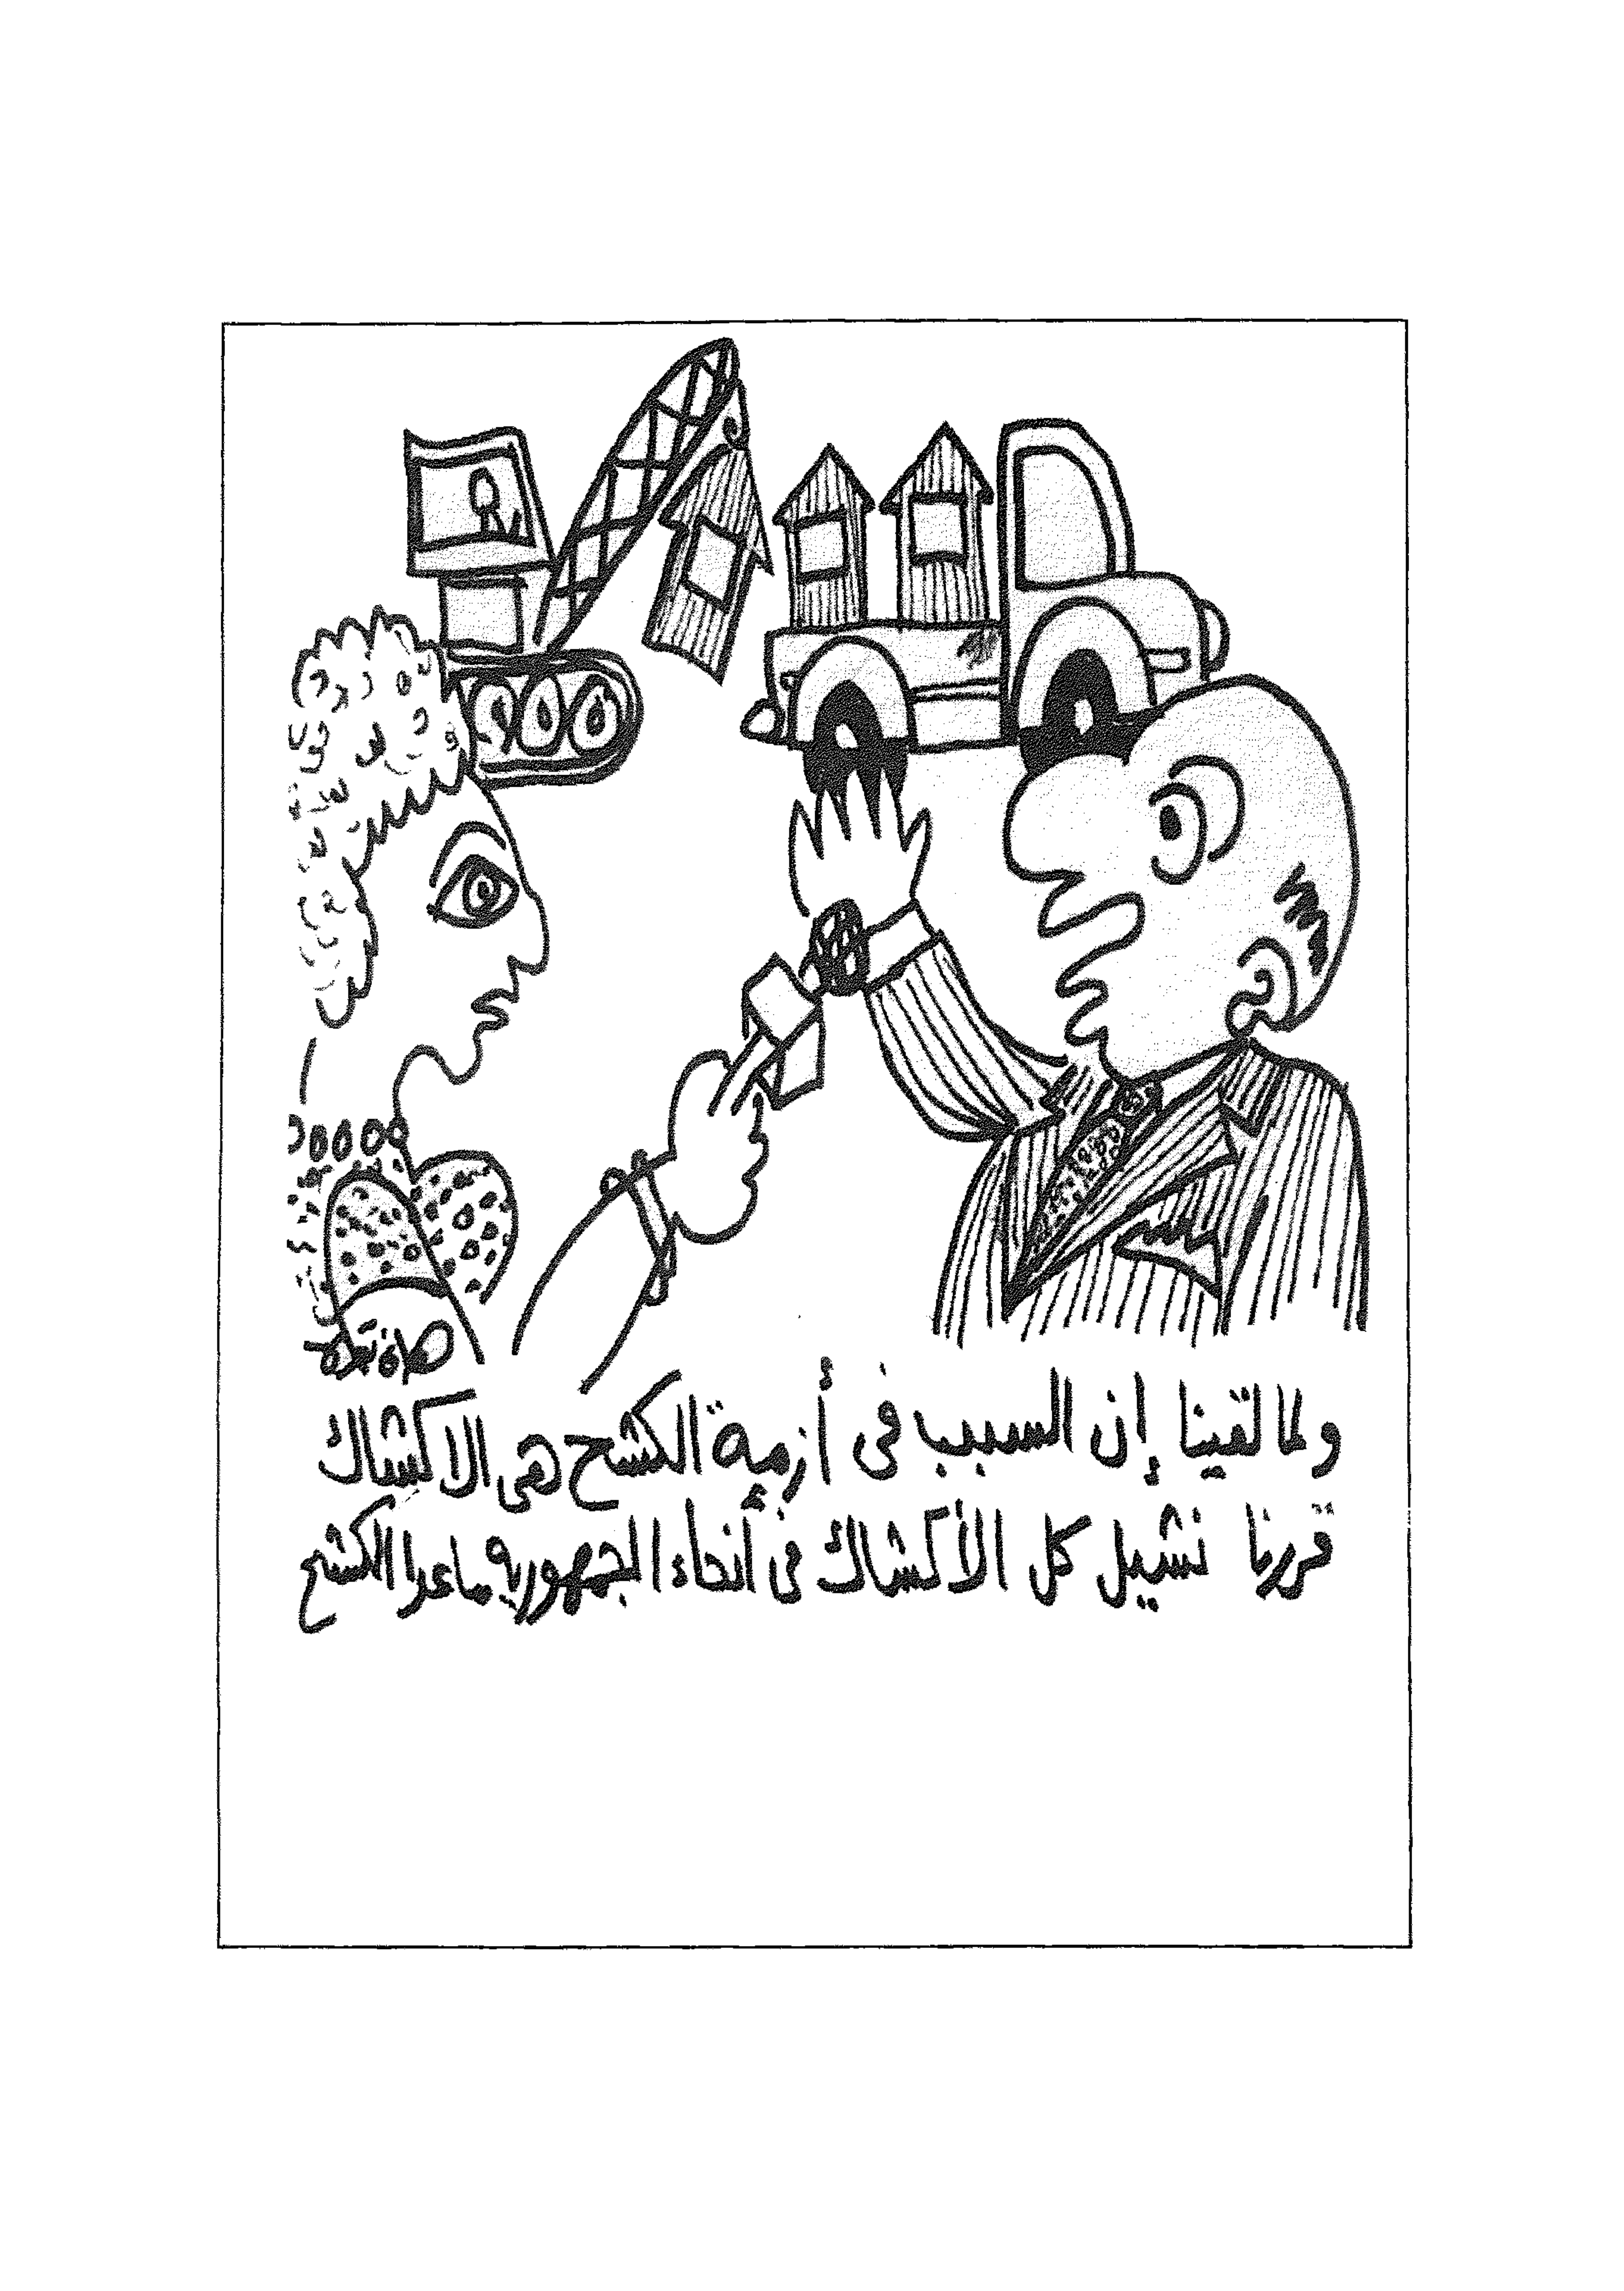 ولما لقينا إن السبب فى أزمة الكشح هى الاكشاك
قررنا نشيل كل الأكشاك فى أنحاء الجمهورية ماعدا الكشح